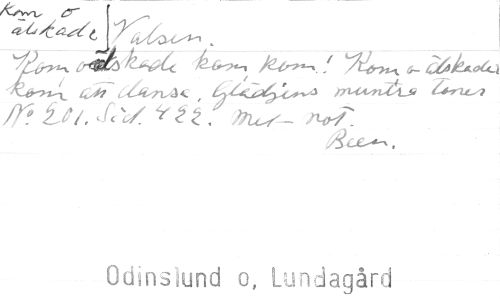 Kom o
älskade
Valsen.
Kom o älskade kom, kom! Kom o älskade
kom att dansa. Glädjens muntra toner
No 201. Sid. 422. Met not.
Bien.
Odinslund o, Lundagård